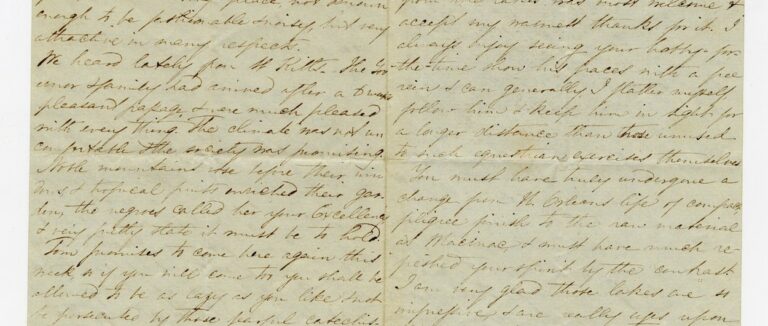 enough to be fashionable & noisy, but very
attractive in many respects.
We heard lately from St Kitts. The Gov
ernor & family had arrived after a 5 weeks
pleasant passage & were much pleased
with every thing. The climate was not un
comfortable & the society was promising.
Noble mountains rose before their win
dows & tropical fruits enriched their gar
den, the negroes called her your Excellency
& very pretty state it must be to hold.
Tom promises to come here again this
week so if you will come too you shall be
allowed to be as lazy as you like & not
be persecuted by those
was most welcome &
accept my warmest thanks for it. I
always enjoy seeing your hobby for
the time show his paces with a free
rein & can generally I flatter myself
follow him & keep him in sight for
a longer distance than those unused
to such equestrian exercises themselves
You must have truly undergone a
change from N Orleans life of
finish to the raw material
at Macinac & must have much re
freshed your spirit by the contrast
I am very glad those lakes are so
impressive & are really upon